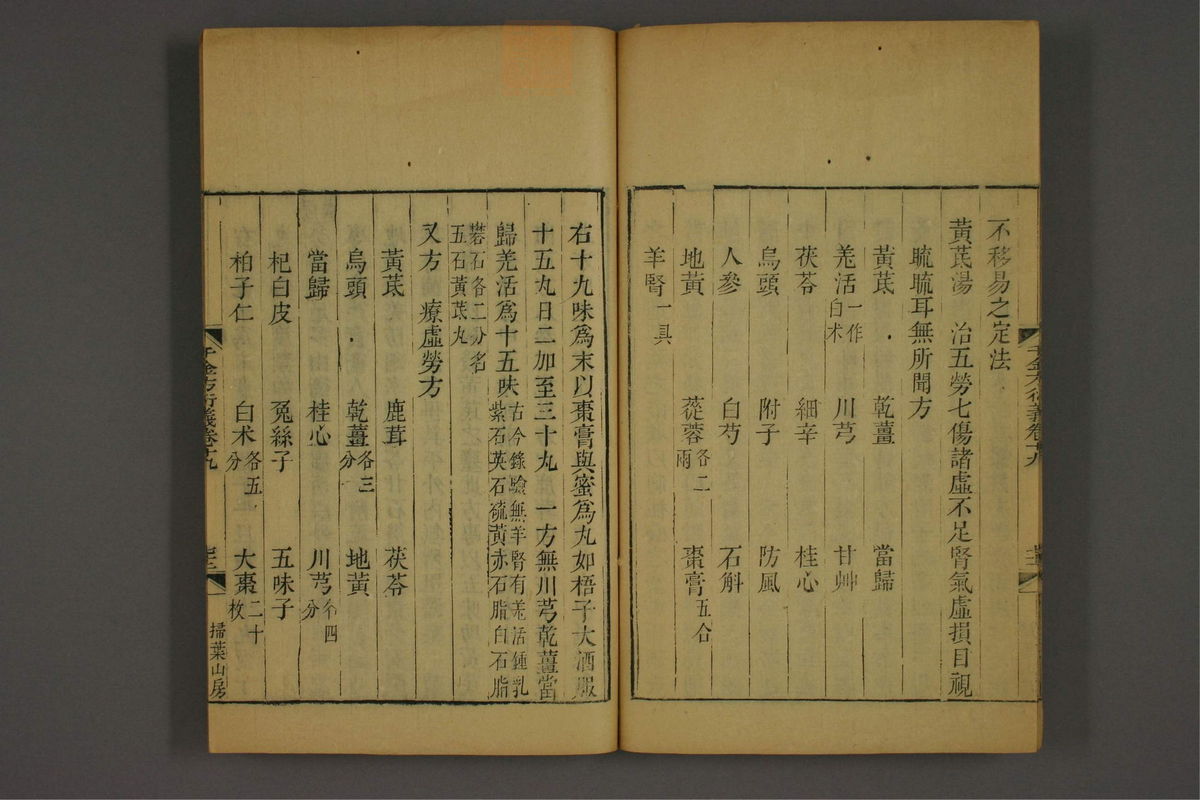 不移易之定法
黃芪湯 治五勞七傷諸虛不足腎氣虛損目視
䀮䀮耳無所聞方
黃芪 乾薑 當歸
羌活一作白术 川芎 甘艸
茯苓 細辛 桂心
烏頭 附子 防風
人參 白芍 石斛
地黃 蓯蓉各二兩 棗膏五合
羊腎一具
右十九味爲末以棗膏與蜜爲丸如梧子大酒服
十五丸日二加至三十丸 一方無川芎乾薑當
歸羌活爲十五味古今錄驗無羊腎有羌活鍾乳紫石英石硫黃赤石脂白石脂
礬石各二分名五石黃芪丸
又方 療虛勞方
黃芪 鹿茸 茯苓
烏頭 乾薑各三分 地黃
當歸 桂心 川芎各四分
杞白皮 菟絲子 五味子
柏子仁 白术各五分 大棗二十枚
千金方衍義卷十九
掃葉山房